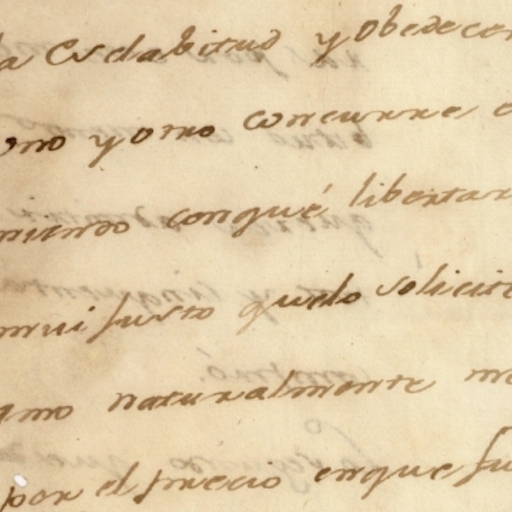 la Esclabitud y Obedecer
Uno y otro concurre
niendo conqué libertar
mui justo quelo solicite
naturalmente
por el precio enque fu